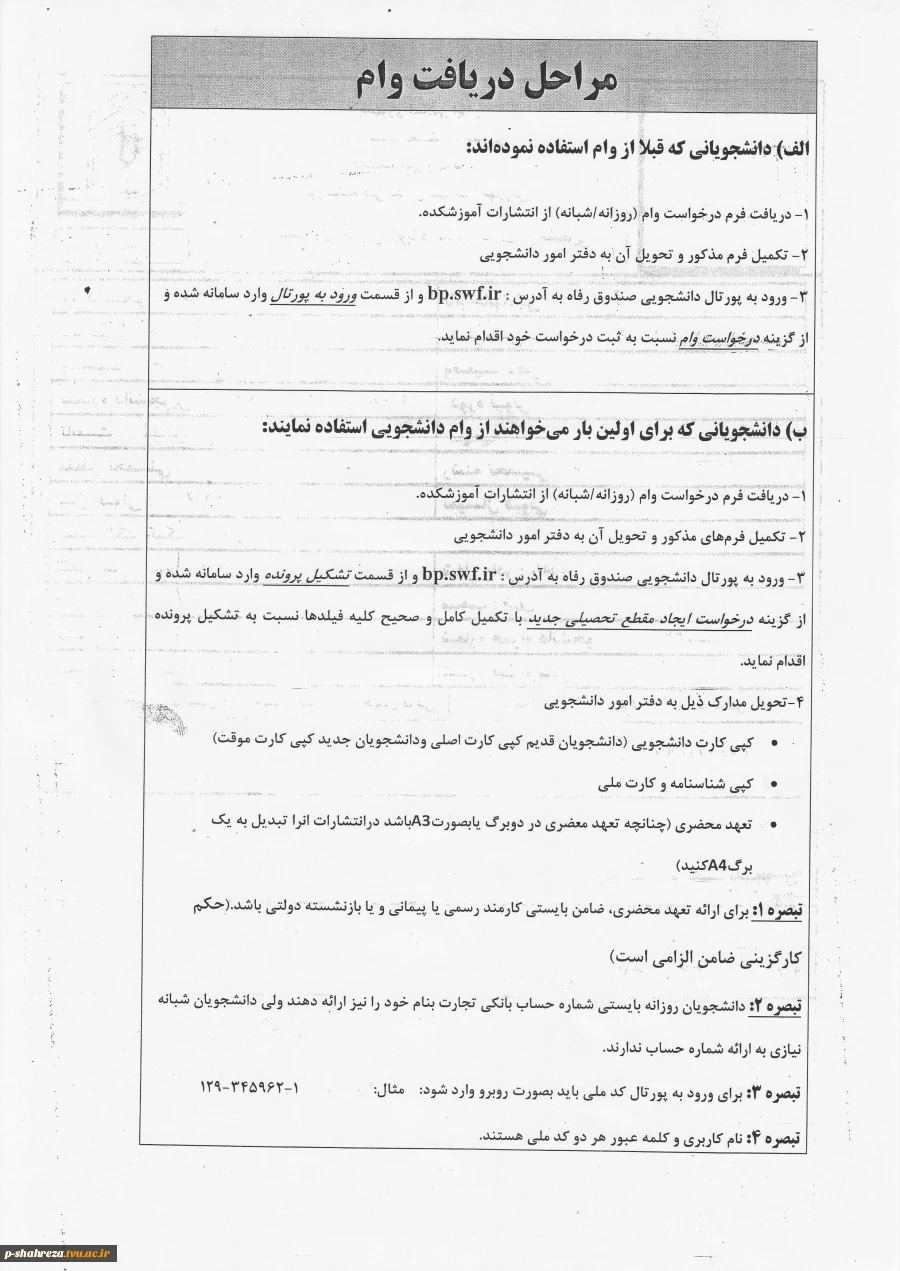 مراحل دریافت وام
الف) دانشجویانی که قبلا از وام استفاده نموده‌اند:
۱- دریافت فرم درخواست وام (روزانه/شبانه) از انتشارات آموزشکده.
۲- تکمیل فرم مذکور و تحویل آن به دفتر امور دانشجویی
۳- ورود به پورتال دانشجویی صندوق رفاه به آدرس : bp.swf.ir و از قسمت ورود به پورتال وارد سامانه شده و
از گزینه درخواست وام نسبت به ثبت درخواست خود اقدام نماید.
ب) دانشجویانی که برای اولین بار می‌خواهند از وام دانشجویی استفاده نمایند:
۱- دریافت فرم درخواست وام (روزانه/شبانه) از انتشارات آموزشکده.
۲- تکمیل فرم‌های مذکور و تحویل آن به دفتر امور دانشجویی
۳- ورود به پورتال دانشجویی صندوق رفاه به آدرس : bp.swf.ir و از قسمت تشکیل پرونده وارد سامانه شده و
از گزینه درخواست ایجاد مقطع تحصیلی جدید با تکمیل کامل و صحیح کلیه فیلدها نسبت به تشکیل پرونده
اقدام نماید.
۴-تحویل مدارک ذیل به دفتر امور دانشجویی
• کپی کارت دانشجویی (دانشجویان قدیم کپی کارت اصلی ودانشجویان جدید کپی کارت موقت)
• کپی شناسنامه و کارت ملی
• تعهد محضری (چنانچه تعهد معضری در دوبرگ یابصورتA3باشد درانتشارات انرا تبدیل به یک
برگA4کنید)
تبصره 1: برای ارائه تعهد محضری، ضامن بایستی کارمند رسمی یا پیمانی و یا بازنشسته دولتی باشد.(حکم
کارگزینی ضامن الزامی است)
تبصره ۲: دانشجویان روزانه بایستی شماره حساب بانکی تجارت بنام خود را نیز ارائه دهند ولی دانشجویان شبانه
نیازی به ارائه شماره حساب ندارند.
تبصره ۳: برای ورود به پورتال کد ملی باید بصورت روبرو وارد شود: مثال: ۱-۳۴۵۹۶۲-۱۲۹
تبصره ۴: نام کاربری و کلمه عبور هر دو کد ملی هستند.
p-shahreza.tvu.ac.ir